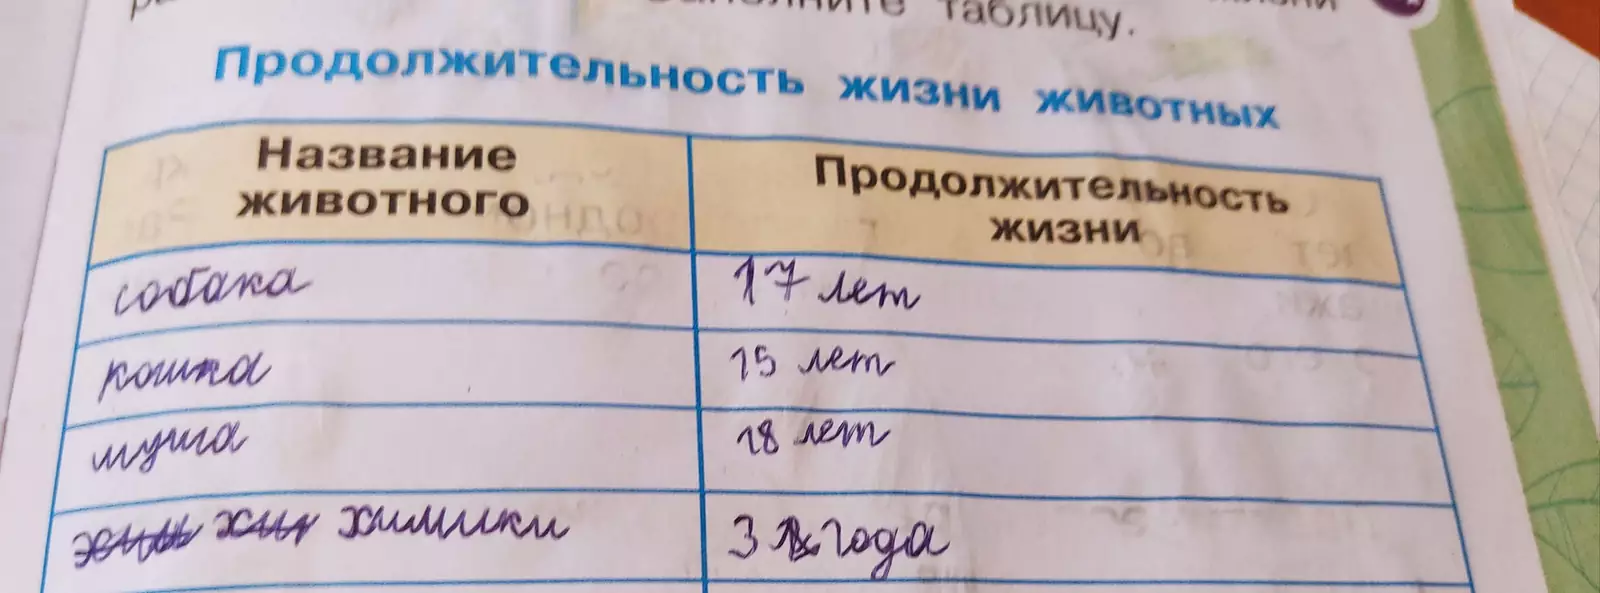 Заполните таблицу.
Продолжительность жизни животных
Название животного
Продолжительность жизни
собака
17 лет
кошка
15 лет
18 лет
химики
3 года